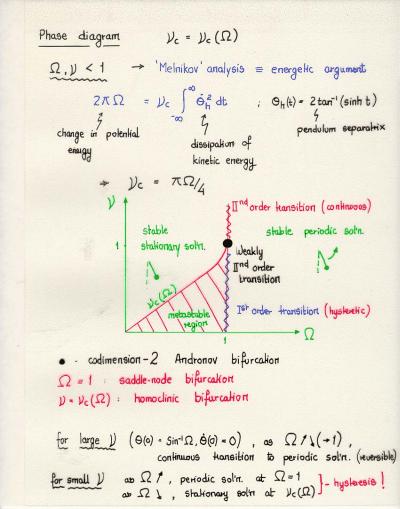 Phase diagram   ν_c = ν_c(Ω)
Ω, ν < 1 → 'Melnikov' analysis ≡ energetic argument
2πΩ = ν_c ∫_{-∞}^{∞} θ̇_h² dt ; θ_h(t) = 2tan⁻¹(sinh t)
change in potential energy
dissipation of kinetic energy
pendulum separatrix
⇒ ν_c = πΩ/4
ν
IInd order transition (continuous)
stable
stationary soln.
stable periodic soln.
1
Weakly
IInd order
transition
ν_c(Ω)
metastable
region
Ist order transition (hysteretic)
1
Ω
● - codimension-2 Andronov bifurcation
Ω = 1 : saddle-node bifurcation
ν = ν_c(Ω) : homoclinic bifurcation
for large ν (θ(0) = Sin⁻¹Ω, θ̇(0) = 0) , as Ω↑↓(→1) ,
continuous transition to periodic soln. (reversible)
for small ν as Ω↑ , periodic soln. at Ω=1
as Ω↓ , stationary soln at ν_c(Ω) } - hysteresis !